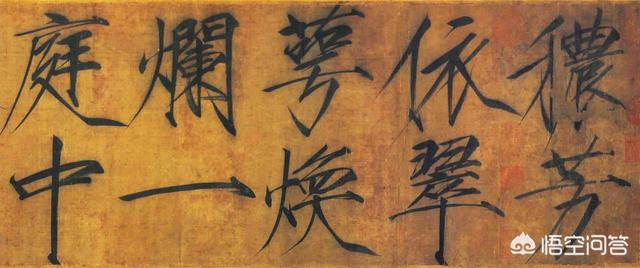 穠芳
依翠
萼煥
爛一
庭中
悟空问答